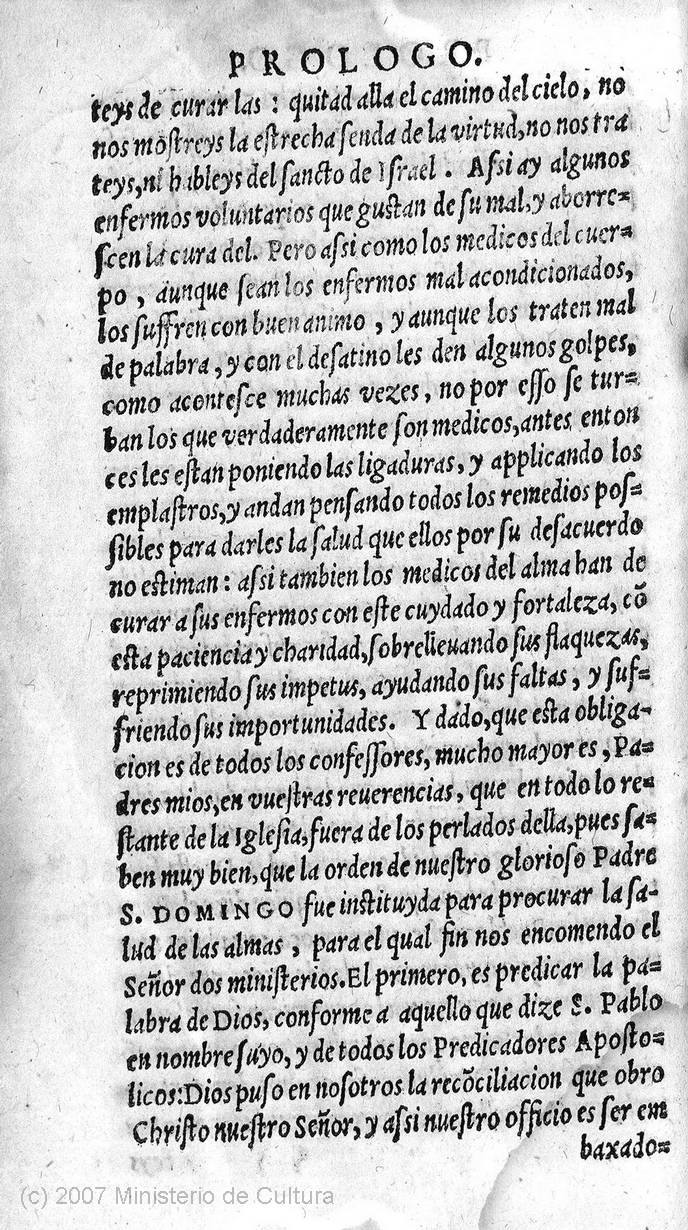 PROLOGO.
teys de curar las : quitad alla el camino del cielo, no
nos mostreys la estrecha senda de la virtud, no nos tra
teys, ni hableys del sancto de Israel . Assi ay algunos
enfermos voluntarios que gustan de su mal, y aborre=
scen la cura del. Pero assi como los medicos del cuer=
po , aunque sean los enfermos mal acondicionados,
los suffren con buen animo , y aunque los traten mal
de palabra, y con el desatino les den algunos golpes,
como acontesce muchas vezes, no por esso se tur=
ban los que verdaderamente son medicos, antes enton
ces les estan poniendo las ligaduras, y applicando los
emplastros, y andan pensando todos los remedios pos=
sibles para darles la salud que ellos por su desacuerdo
no estiman : assi tambien los medicos del alma han de
curar a sus enfermos con este cuydado y fortaleza, cõ
esta paciencia y charidad, sobrelleuando sus flaquezas,
reprimiendo sus impetus, ayudando sus faltas , y suf=
friendo sus importunidades. Y dado, que esta obliga-
cion es de todos los confessores, mucho mayor es, Pa=
dres mios, en vuestras reuerencias, que en todo lo re=
stante de la Iglesia, fuera de los perlados della, pues sa=
ben muy bien, que la orden de nuestro glorioso Padre
S. DOMINGO fue instituyda para procurar la sa-
lud de las almas , para el qual fin nos encomendo el
Señor dos ministerios. El primero, es predicar la pa=
labra de Dios, conforme a aquello que dize S. Pablo
en nombre suyo, y de todos los Predicadores Aposto=
licos: Dios puso en nosotros la recõciliacion que obro
Christo nuestro Señor, y assi nuestro officio es ser em
baxado=
(c) 2007 Ministerio de Cultura